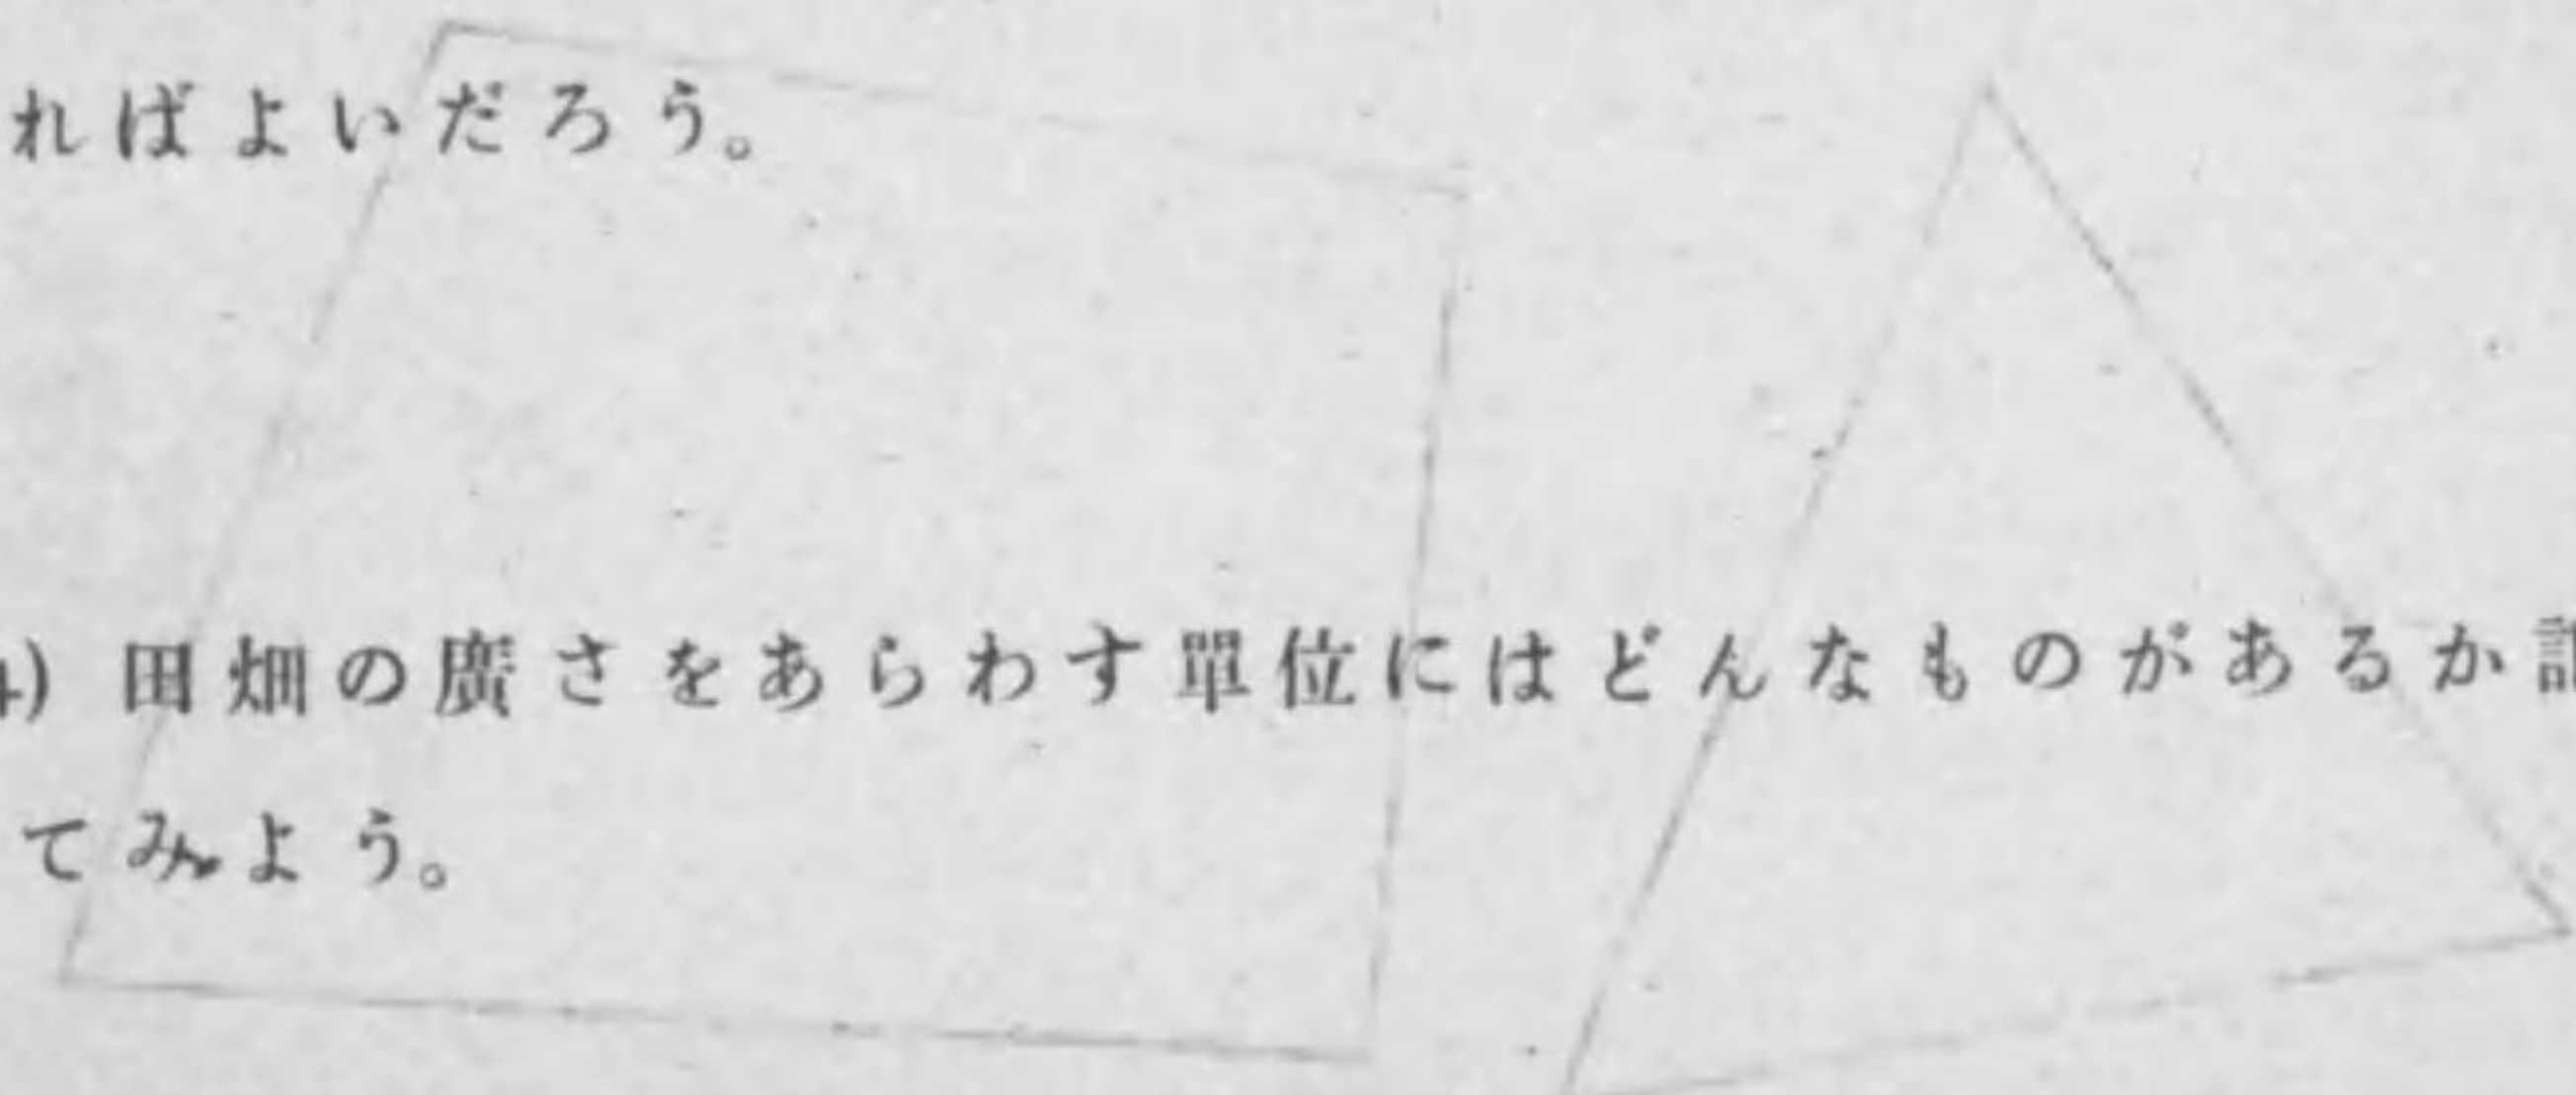 ればよいだろう。
4) 田畑の廣さをあらわす單位にはどんなものがあるか
てみよう。